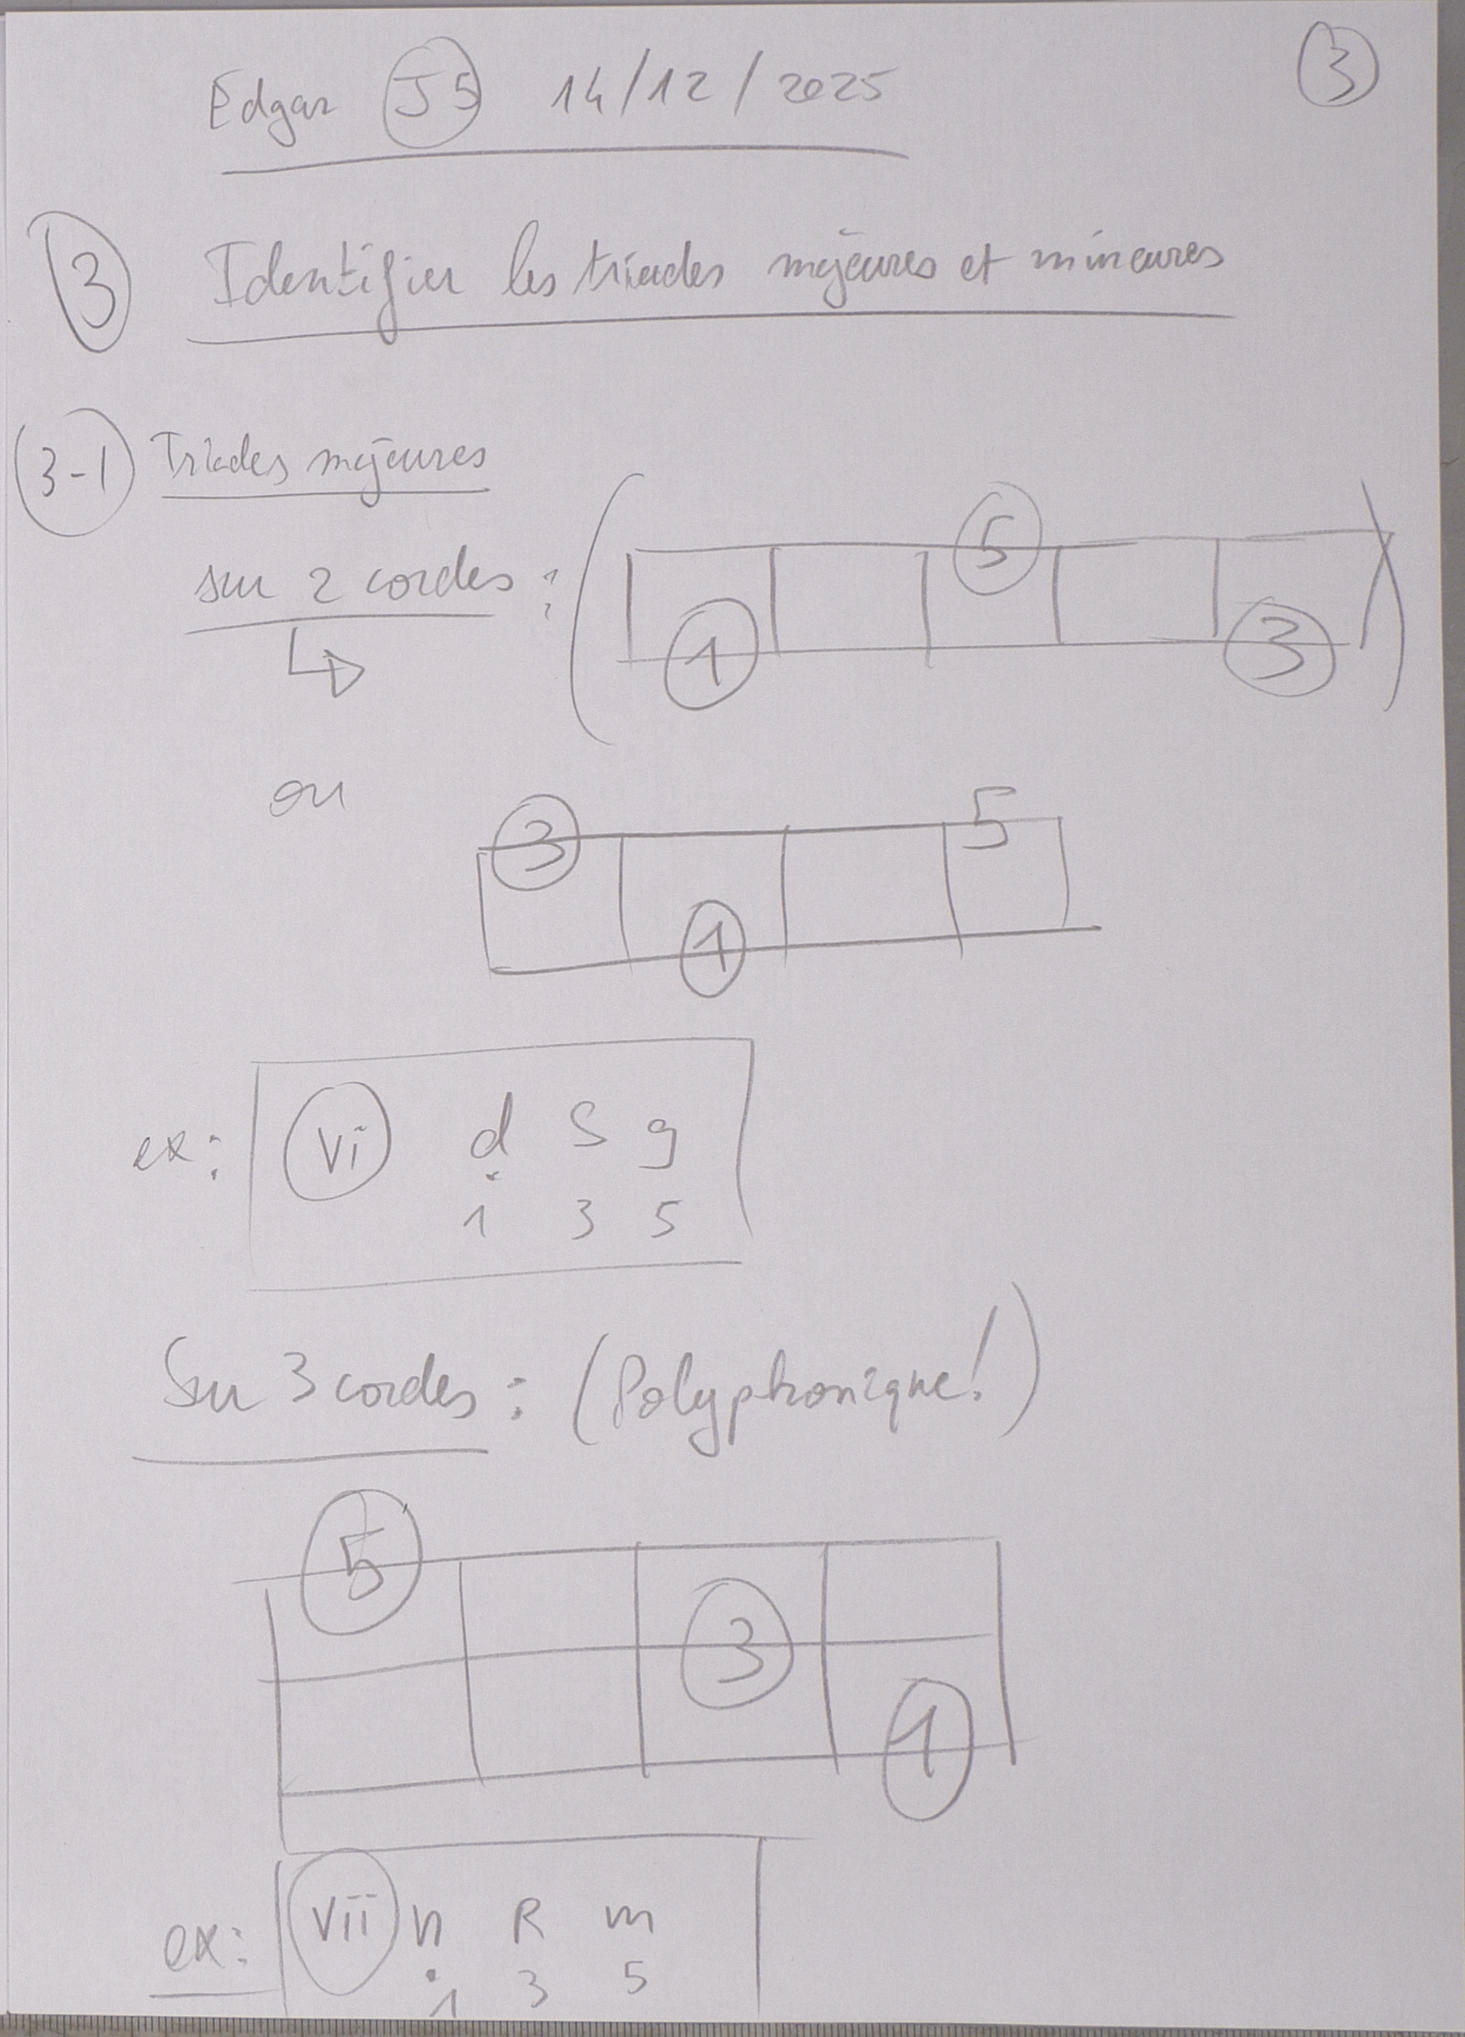 Edgar J5 14/12/2025 3
3 Identifier les triades majeures et mineures
3-1 Triades majeures
sur 2 cordes :
5
1 3
ou
3 5
1
ex: Vi d S g
1 3 5
Sur 3 cordes : (Polyphonique!)
5
3
1
ex: Vii n R m
1 3 5